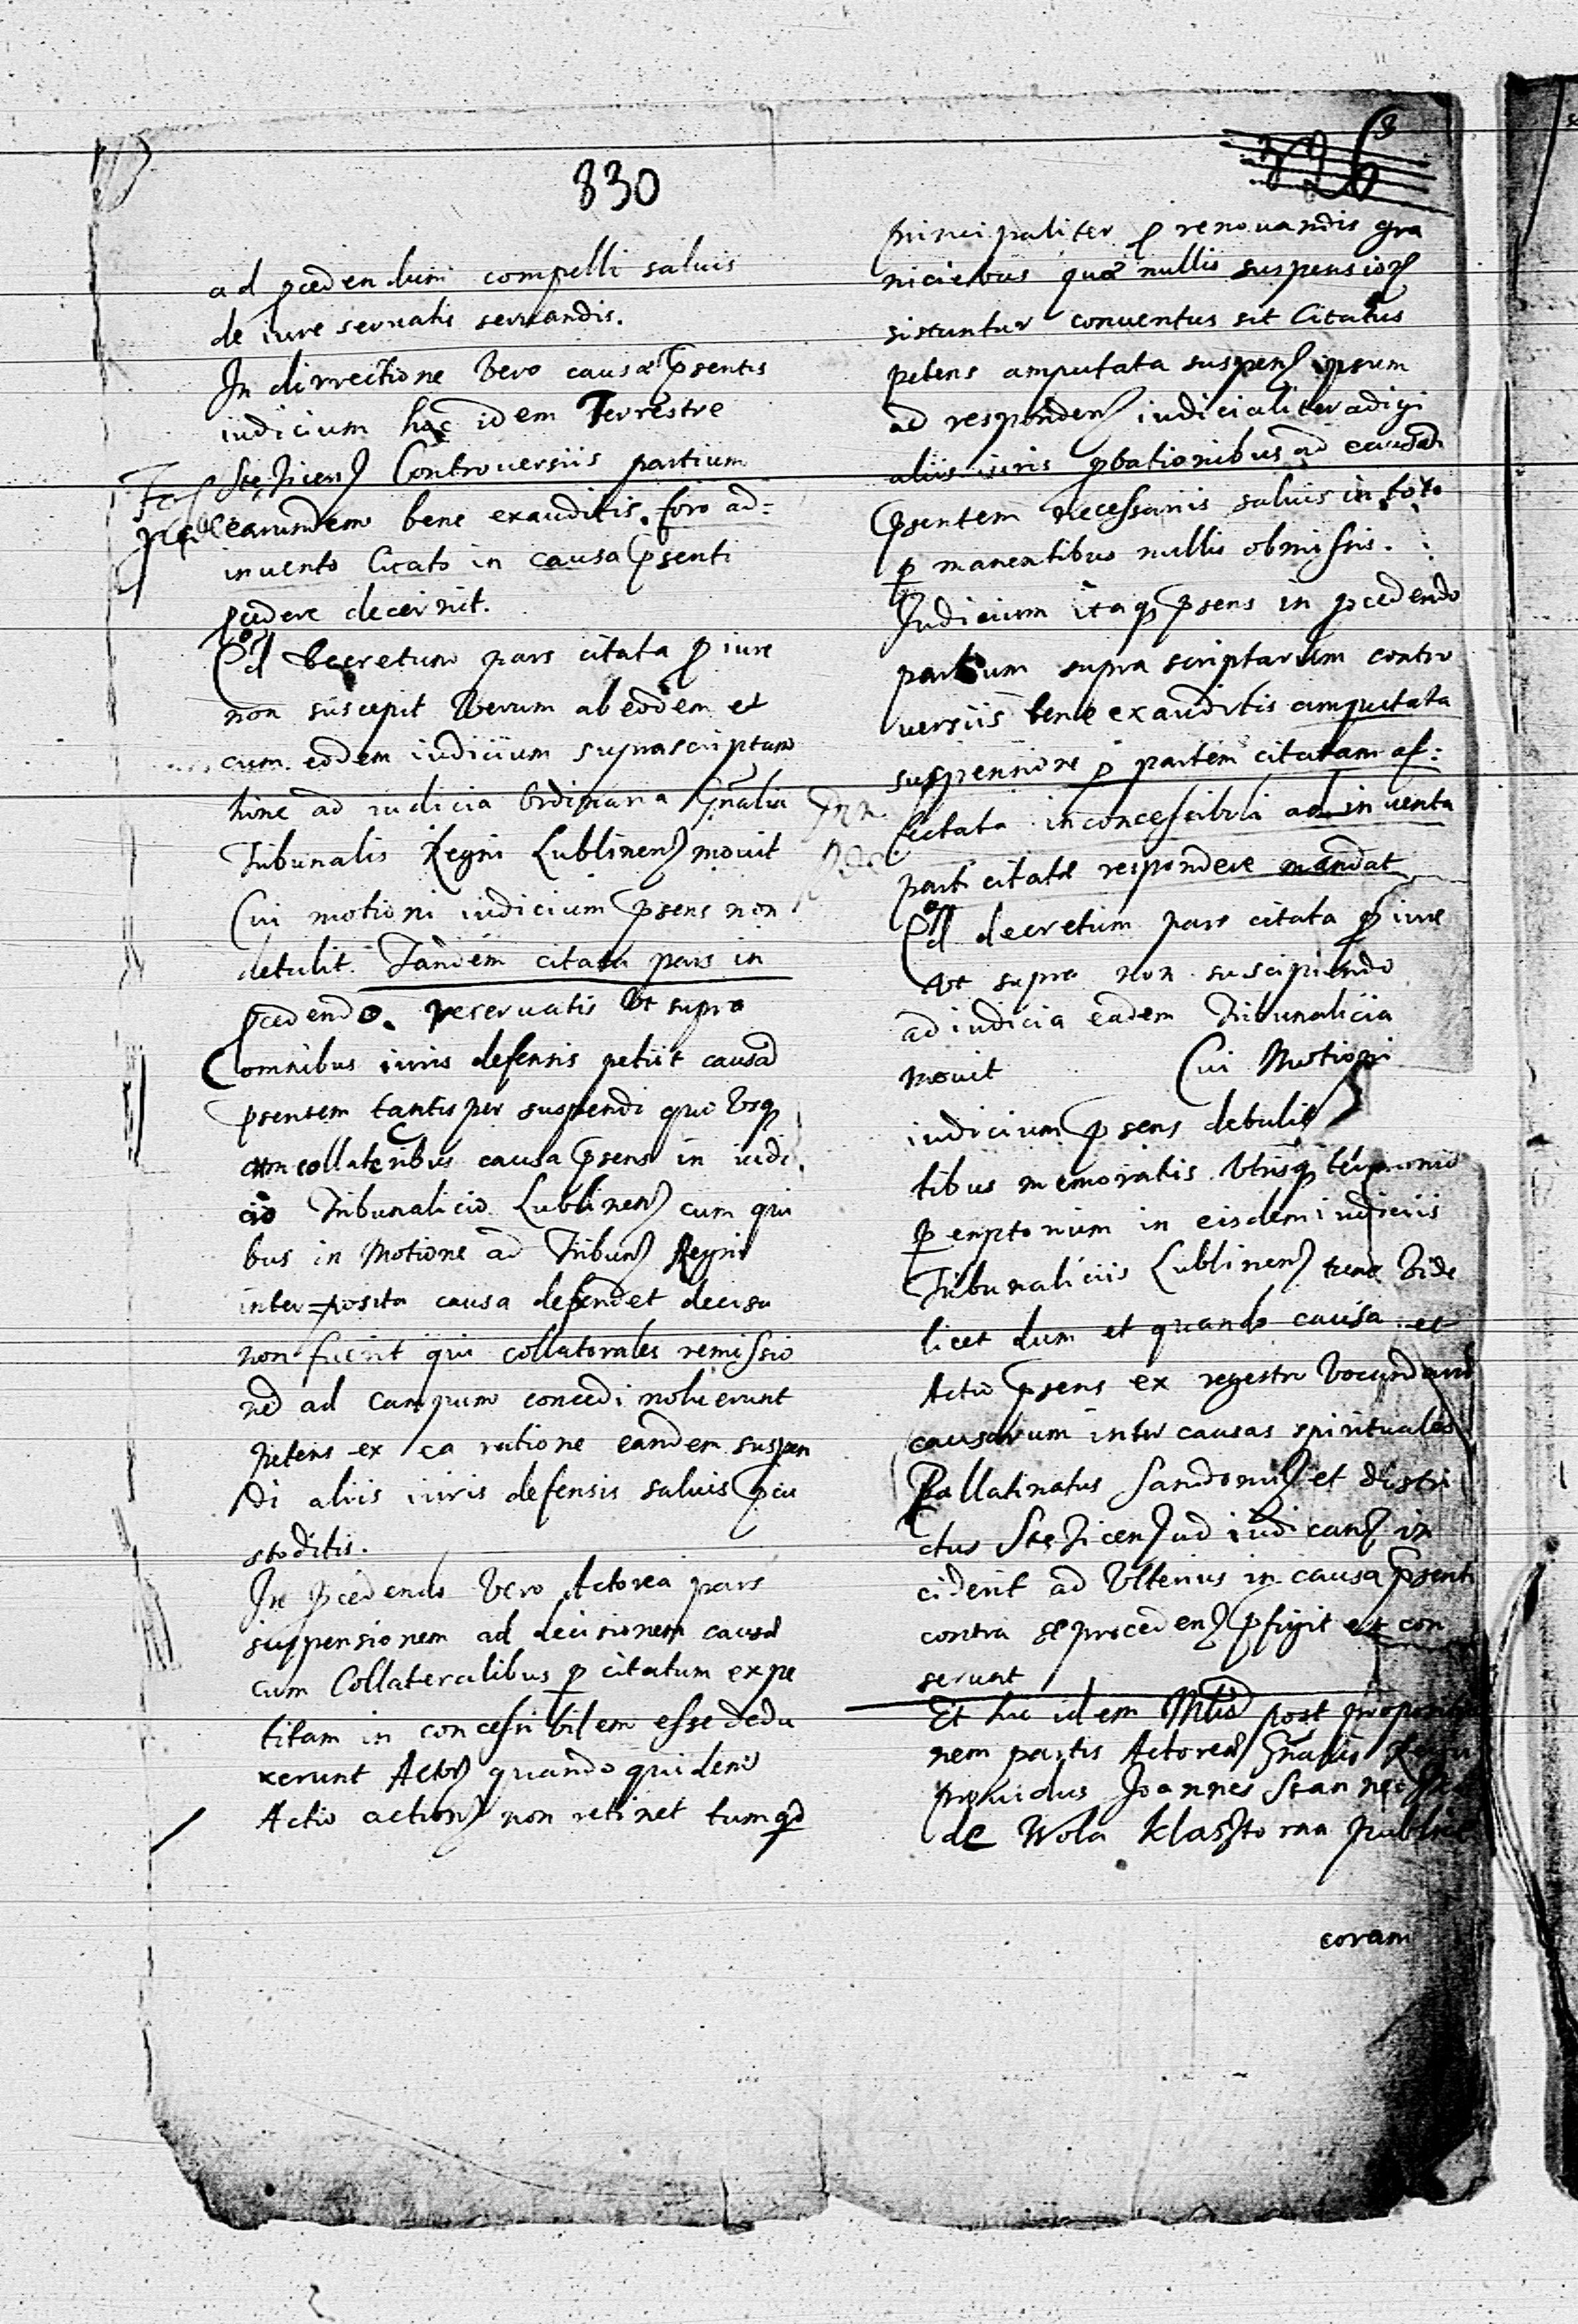 830
ad pcedendum compelli saluis
de iure seruatis seruandis.
In dirrectione Vero causæ psentis
iudicium hoc idem Terrestre
Stęzicen Controuersiis partium
earundem bene exauditis. foro ad=
inuento licato in causa psenti
pcedere decernit.
Qd Decretum pars citata p iure
non suscepit Verum ab eodem et
cum eodem iudicium suprascriptum
hinc ad iudicia Ordinaria Gnalia
Tribunalis Regni Lublinen mouit
Cui motioni iudicium psens non
detulit. Tandem citata pars in
pcedendo. reseruatis Vt supra
omnibus iuris defensis petiit causa
psentem tantisper suspendi quo Vsq
cum collateribus causa psens in iudi
cio Tribunalicio Lublinen cum qui
bus in Motione ad Tribun Regni
inter=posita causa dependet decisa
non fuerit qui collaterales remissio
ne ad campum concedi noluerunt
petens ex ea ratione eandem suspen
di aliis iuris defensis saluis pcu
stoditis.
In pcedendo Vero Actorea pars
suppensionem ad decisionem causæ
cum Collateralibus p citatum expe
titam in concessibilem esse dedu
xerunt Actor quando quidem
Actio action non retinet tum qd
principaliter p renouandis gra
niciebus quæ nullis suspension
sistuntur conuentus sit Citatus
petens amputata suspen ipsum
ad responden iudicialiter adigi
aliis iuris pbationibus ad causam
psentem necessariis saluis in toto
p manentibus nullis obmissis.
Iudicium itaq psens in pcedendo
partium supra scriptarum contro
uersiis bene exauditis amputata
suspensione p partem citatam af:
fectata inconcessibili adinuenta
parti citatæ respondere mandat
Qd decretum pars citata p iure
Vt supra non suscipiendo
ad iudicia eadem Tribunalicia
mouit Cui Motioni
iudicium psens detulit
tibus memoratis Vtrisq terminum
p emptorium in eisdem iudiciis
Tribunaliciis Lublinen tunc Vide
licet dum et quando causa et
Actio psens ex regestro Vocandarum
causarum inter causas spirituales
Pallatinatus Sandomi et distri
ctus Stęzicen iudican in
ciderit ad Vlterius in causa psenti
contra se proceden pfigit et con
serunt
Et hic idem post propositio
nem partis Actoreæ Gnalis Regni
prouidus Joannes
de Wola Klasztorna
coram